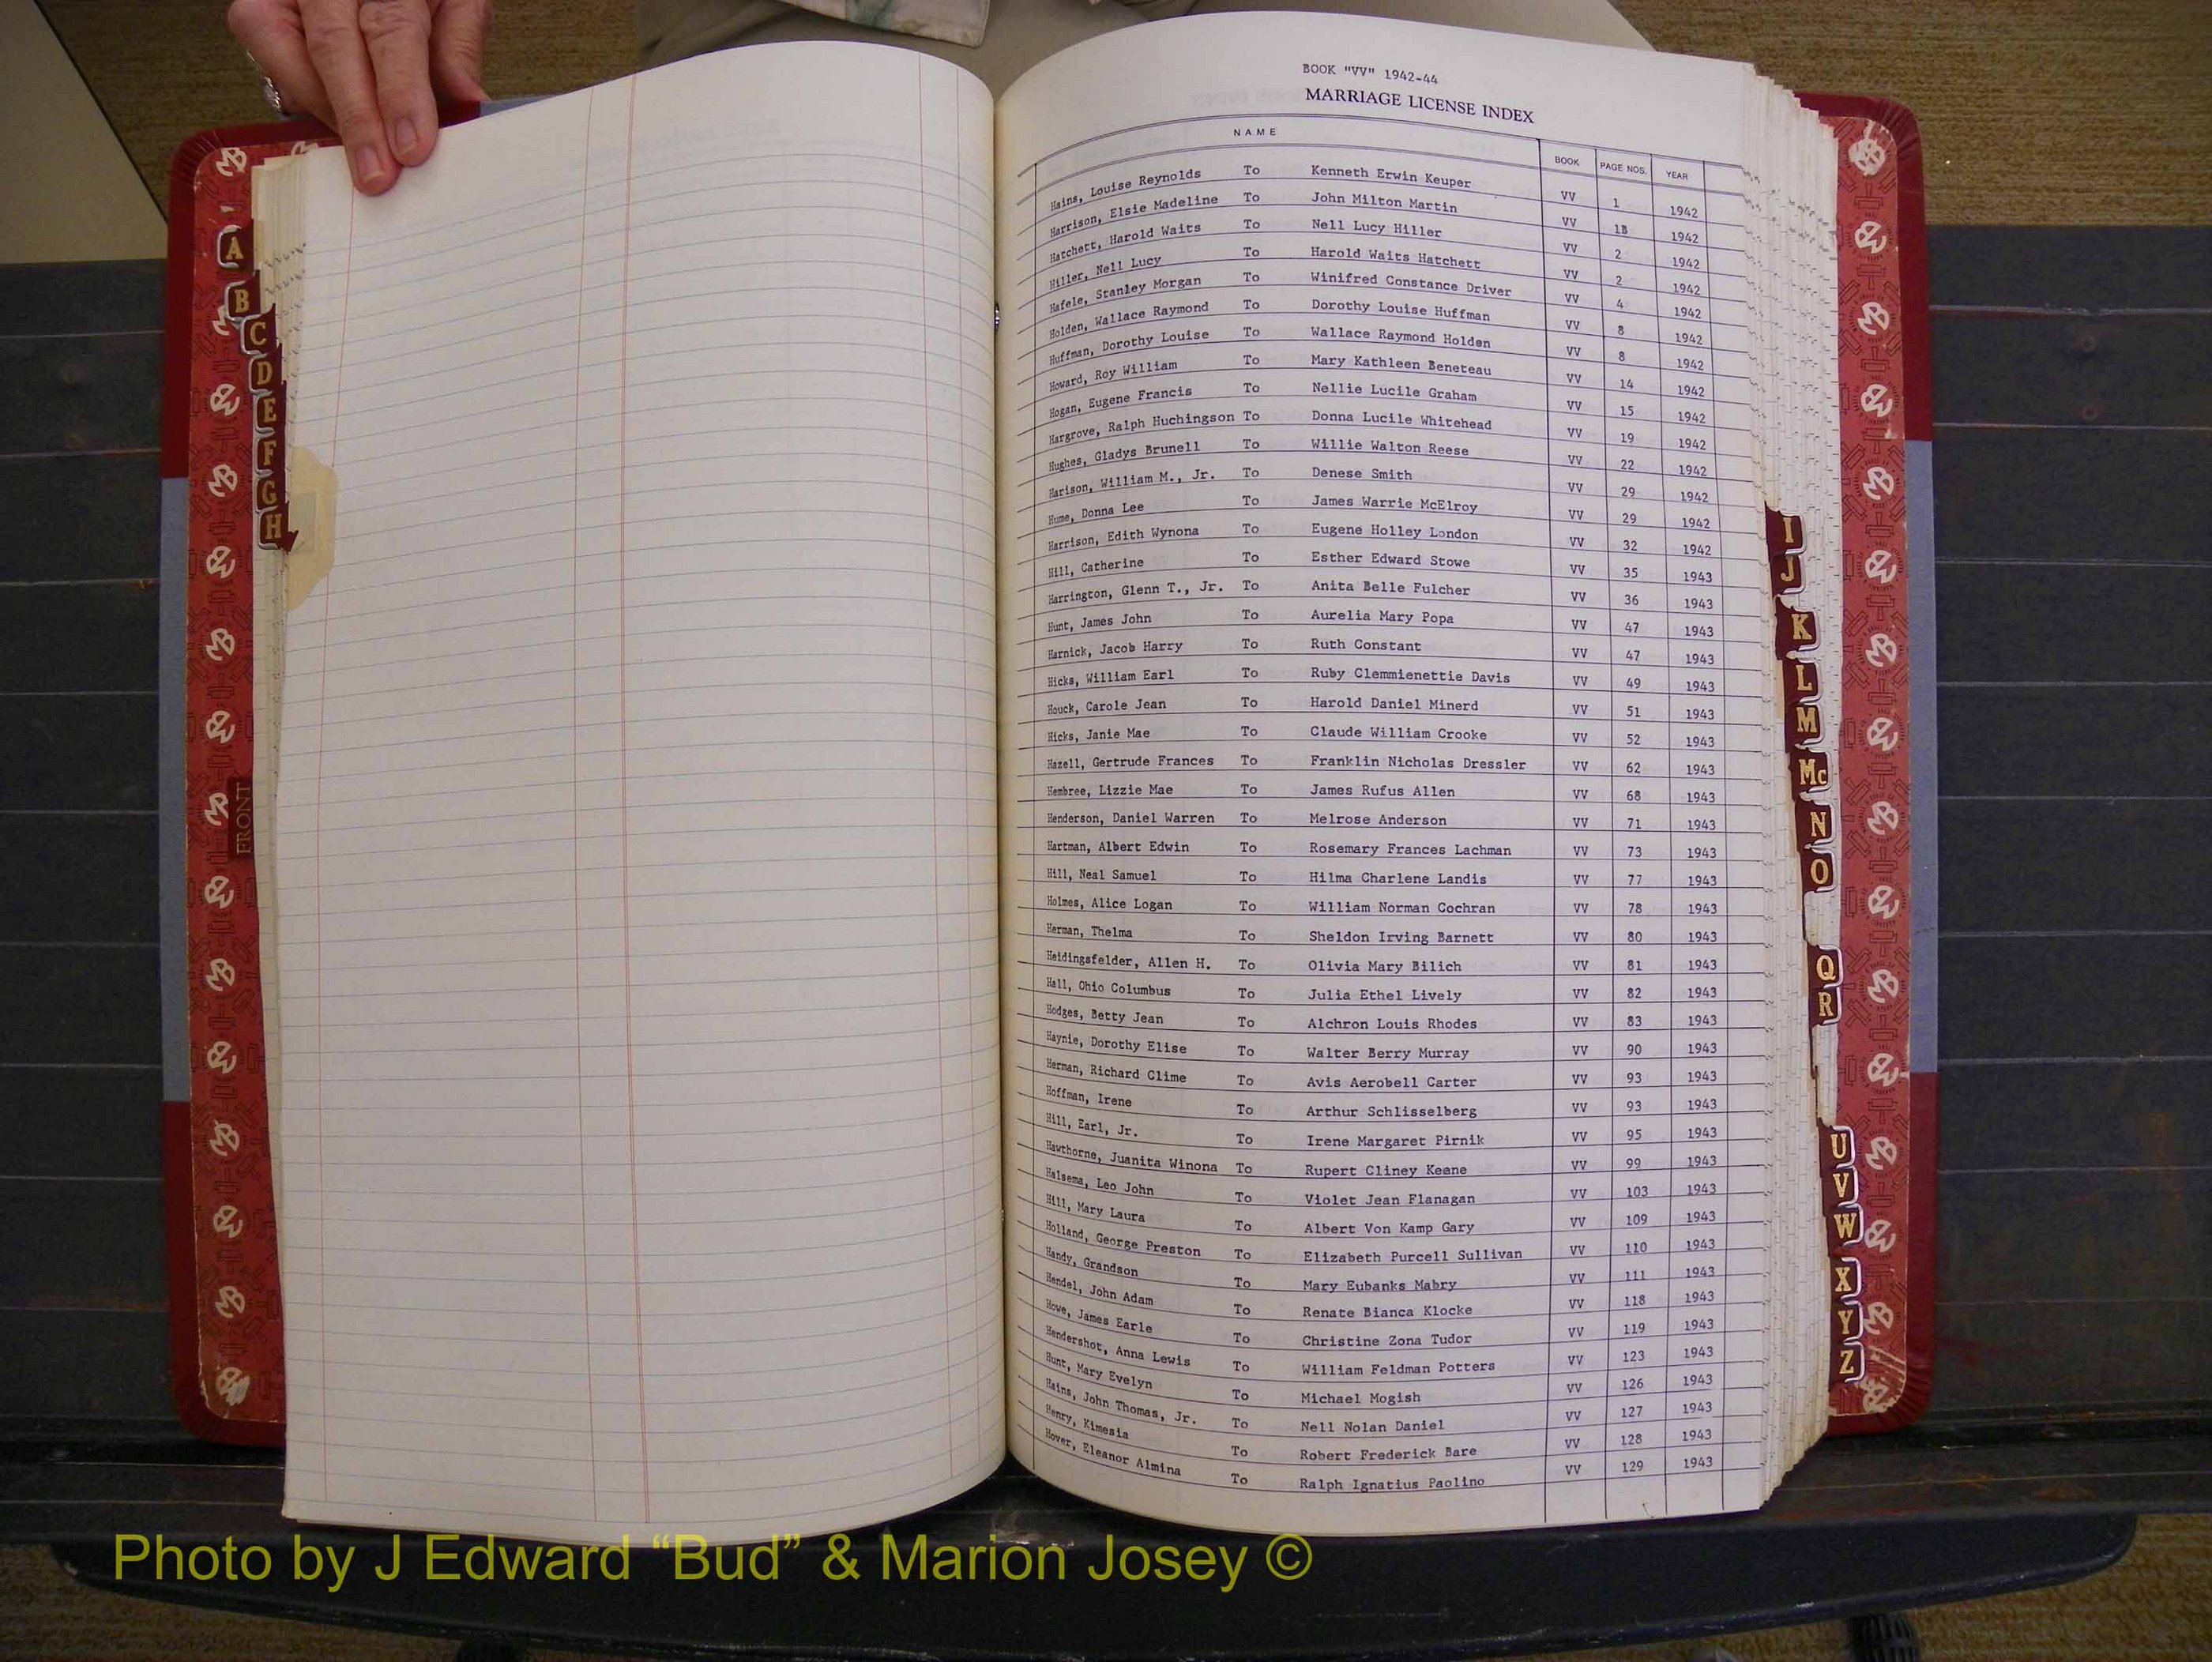 BOOK "VV" 1942-44
MARRIAGE LICENSE INDEX
NAME BOOK PAGE NOS. YEAR
Hains, Louise Reynolds To Kenneth Erwin Keuper VV 1 1942
Harrison, Elsie Madeline To John Milton Martin VV 1B 1942
Hatchett, Harold Waits To Nell Lucy Hiller VV 2 1942
Hiller, Nell Lucy To Harold Waits Hatchett VV 2 1942
Hafele, Stanley Morgan To Winifred Constance Driver VV 4 1942
Holden, Wallace Raymond To Dorothy Louise Huffman VV 8 1942
Huffman, Dorothy Louise To Wallace Raymond Holden VV 8 1942
Howard, Roy William To Mary Kathleen Beneteau VV 14 1942
Hogan, Eugene Francis To Nellie Lucile Graham VV 15 1942
Hargrove, Ralph Huchingson To Donna Lucile Whitehead VV 19 1942
Hughes, Gladys Brunell To Willie Walton Reese VV 22 1942
Harison, William M., Jr. To Denese Smith VV 29 1942
Hume, Donna Lee To James Warrie McElroy VV 29 1942
Harrison, Edith Wynona To Eugene Holley London VV 32 1942
Hill, Catherine To Esther Edward Stowe VV 35 1943
Harrington, Glenn T., Jr. To Anita Belle Fulcher VV 36 1943
Hunt, James John To Aurelia Mary Popa VV 47 1943
Harnick, Jacob Harry To Ruth Constant VV 47 1943
Hicks, William Earl To Ruby Clemmienettie Davis VV 49 1943
Houck, Carole Jean To Harold Daniel Minerd VV 51 1943
Hicks, Janie Mae To Claude William Crooke VV 52 1943
Hazell, Gertrude Frances To Franklin Nicholas Dressler VV 62 1943
Hembree, Lizzie Mae To James Rufus Allen VV 68 1943
Henderson, Daniel Warren To Melrose Anderson VV 71 1943
Hartman, Albert Edwin To Rosemary Frances Lachman VV 73 1943
Hill, Neal Samuel To Hilma Charlene Landis VV 77 1943
Holmes, Alice Logan To William Norman Cochran VV 78 1943
Herman, Thelma To Sheldon Irving Barnett VV 80 1943
Heidingsfelder, Allen H. To Olivia Mary Bilich VV 81 1943
Hall, Ohio Columbus To Julia Ethel Lively VV 82 1943
Hodges, Betty Jean To Alchron Louis Rhodes VV 83 1943
Haynie, Dorothy Elise To Walter Berry Murray VV 90 1943
Herman, Richard Clime To Avis Aerobell Carter VV 93 1943
Hoffman, Irene To Arthur Schlisselberg VV 93 1943
Hill, Earl, Jr. To Irene Margaret Pirnik VV 95 1943
Hawthorne, Juanita Winona To Rupert Cliney Keene VV 99 1943
Halsema, Leo John To Violet Jean Flanagan VV 103 1943
Hill, Mary Laura To Albert Von Kamp Gary VV 109 1943
Holland, George Preston To Elizabeth Purcell Sullivan VV 110 1943
Handy, Grandson To Mary Eubanks Mabry VV 111 1943
Hendel, John Adam To Renate Bianca Klocke VV 118 1943
Howe, James Earle To Christine Zona Tudor VV 119 1943
Hendershot, Anna Lewis To William Feldman Potters VV 123 1943
Hunt, Mary Evelyn To Michael Mogish VV 126 1943
Hains, John Thomas, Jr. To Nell Nolan Daniel VV 127 1943
Henry, Kimesia To Robert Frederick Bare VV 128 1943
Hover, Eleanor Almina To Ralph Ignatius Paolino VV 129 1943
A
B
C
D
E
F
G
H
FRONT
I
J
K
L
M
Mc
N
O
Q
R
U
V
W
X
Y
Z
Photo by J Edward “Bud” & Marion Josey ©